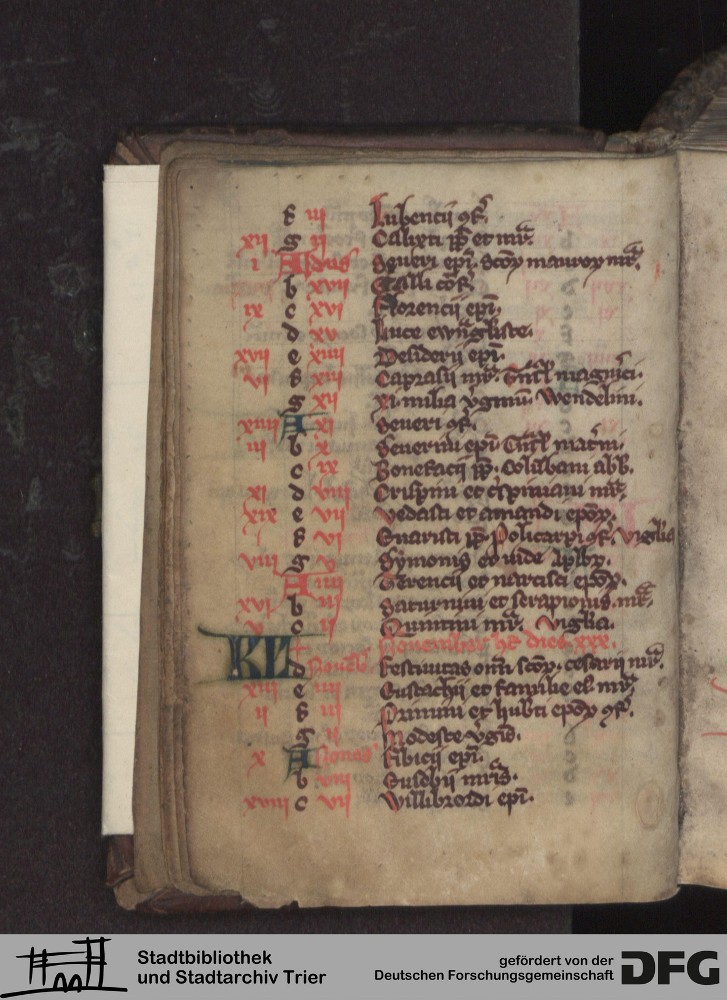 f iij Lubencii ɔf.
xij g ij Calixti pp et mr̄.
i A Idus Seueri epī. Scōꝝ mauroꝝ mr̄.
b xvij Galli ɔf.
ix c xvi Florencii epī.
d xv Luce ewāgliste.
xvij e xiiij Desiderii epī.
vi f xiij Caprasii mr̄.
g xij xi milia v̄ginū. Wendelini.
xiiij A xi Seueri ɔf.
iij b x Seuerini epī.
c ix Bonefacii pp. Colūbani abb.
xi d viij Crispini et crispiniani mr̄.
xix e vij Vedasti et amandi epōꝝ.
f vi Euaristi pp. Policarpi ɔf. vigilia
viij g v Symonis et iude aplōꝝ.
A iiij Terencii et narcisci epōꝝ.
xvi b iij Saturnini et serapionis. mr̄.
v c ij Quintini mr̄. vigilia.
KL Nouember hꝫ dies xxx.
d Nouēb Festiuitas om̄ scōꝝ. cesarii mr̄.
xiij e iiij Eustachii et familie ei mr̄
ij f iij Pirmini et hubti epōꝝ ɔf.
g ij Modeste v̄gīs.
x A Nonas Fibicii epī.
b viij
xviij c vij Willibrordi epī.
Stadtbibliothek
und Stadtarchiv Trier
gefördert von der
Deutschen Forschungsgemeinschaft
DFG